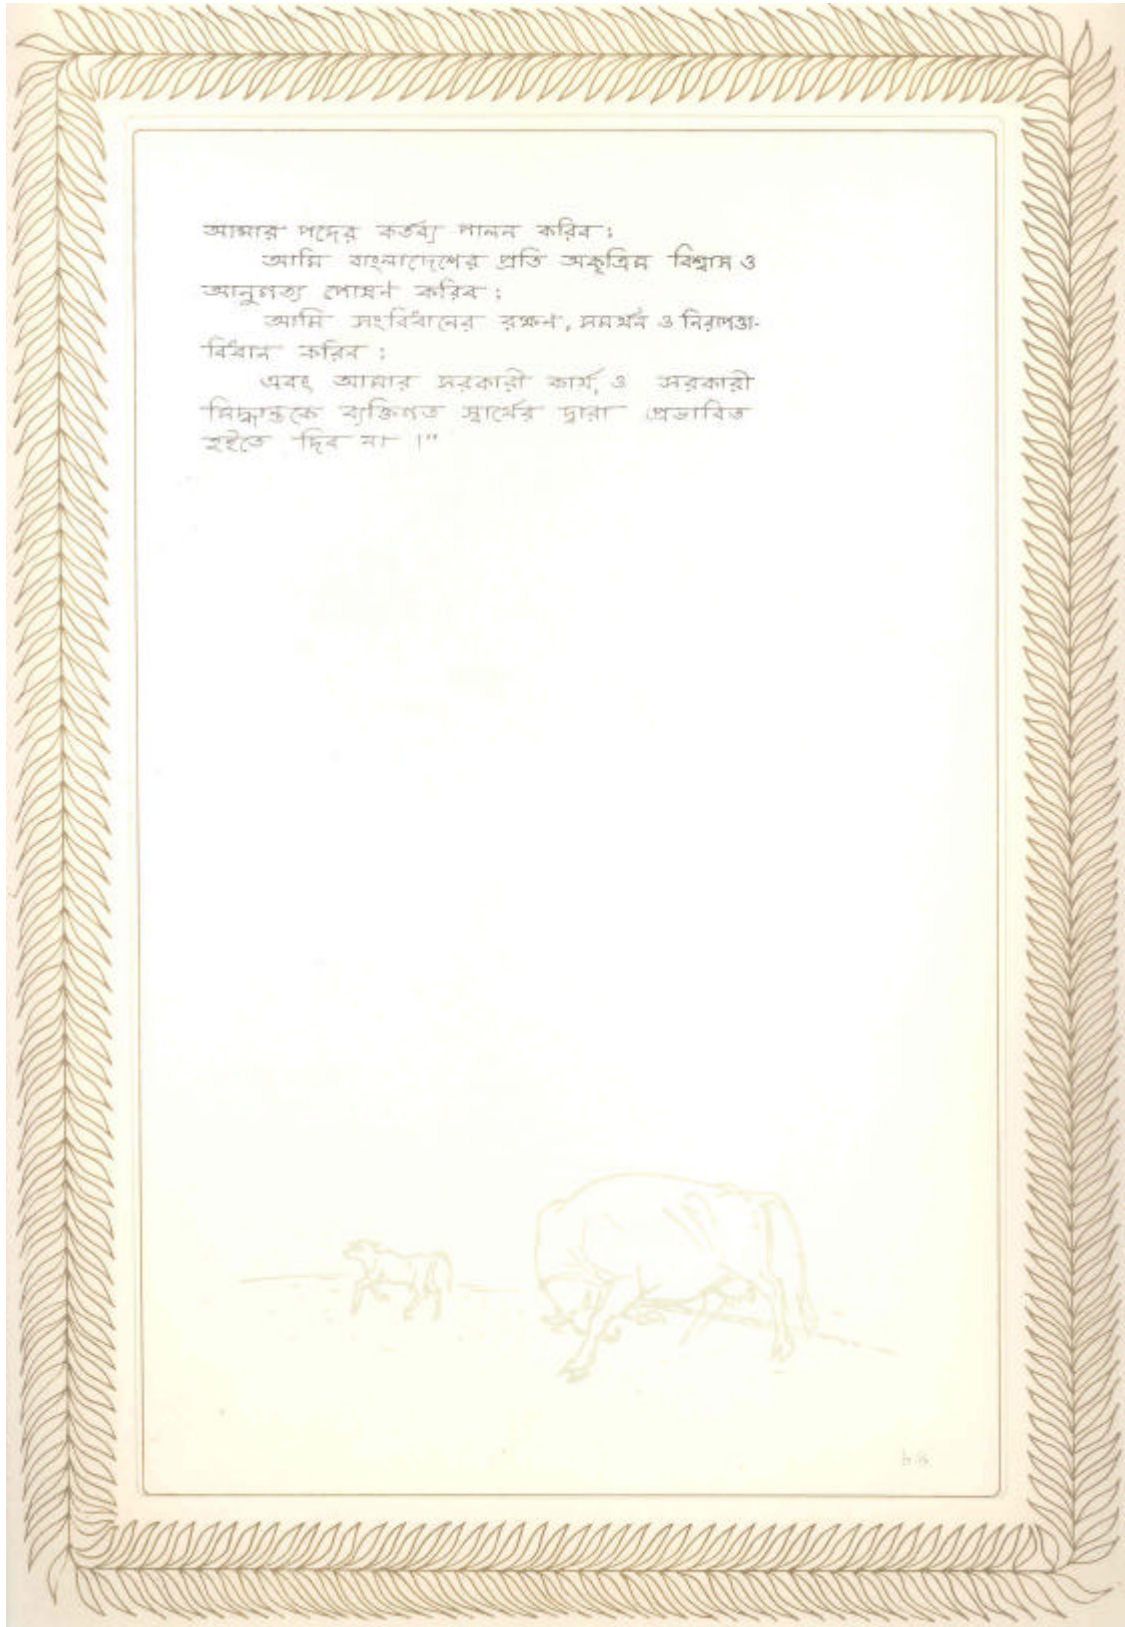 আমার পদের কর্তব্য পালন করিব;
আমি বাংলাদেশের প্রতি অকৃত্রিম বিশ্বাস ও
আনুগত্য পোষণ করিব;
আমি সংবিধানের রক্ষণ, সমর্থন ও নিরাপত্তা-
বিধান করিব;
এবং আমার সরকারী কার্য ও সরকারী
সিদ্ধান্তকে ব্যক্তিগত স্বার্থের দ্বারা প্রভাবিত
হইতে দিব না ।"